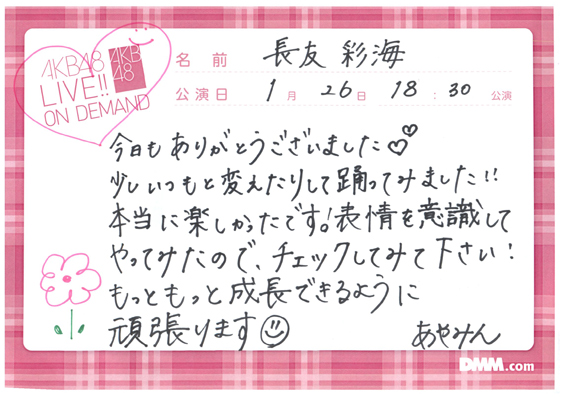 AKB48
LIVE!!
ON DEMAND
AKB
48
名 前 長友 彩海
公演日 1月 26日 18:30 公演
今日もありがとうございました♡♡
少しいつもと変えたりして踊ってみました!!
本当に楽しかったです!表情を意識して
やってみたので、チェックしてみて下さい!
もっともっと成長できるように
頑張ります☺
あやみん
DMM.com